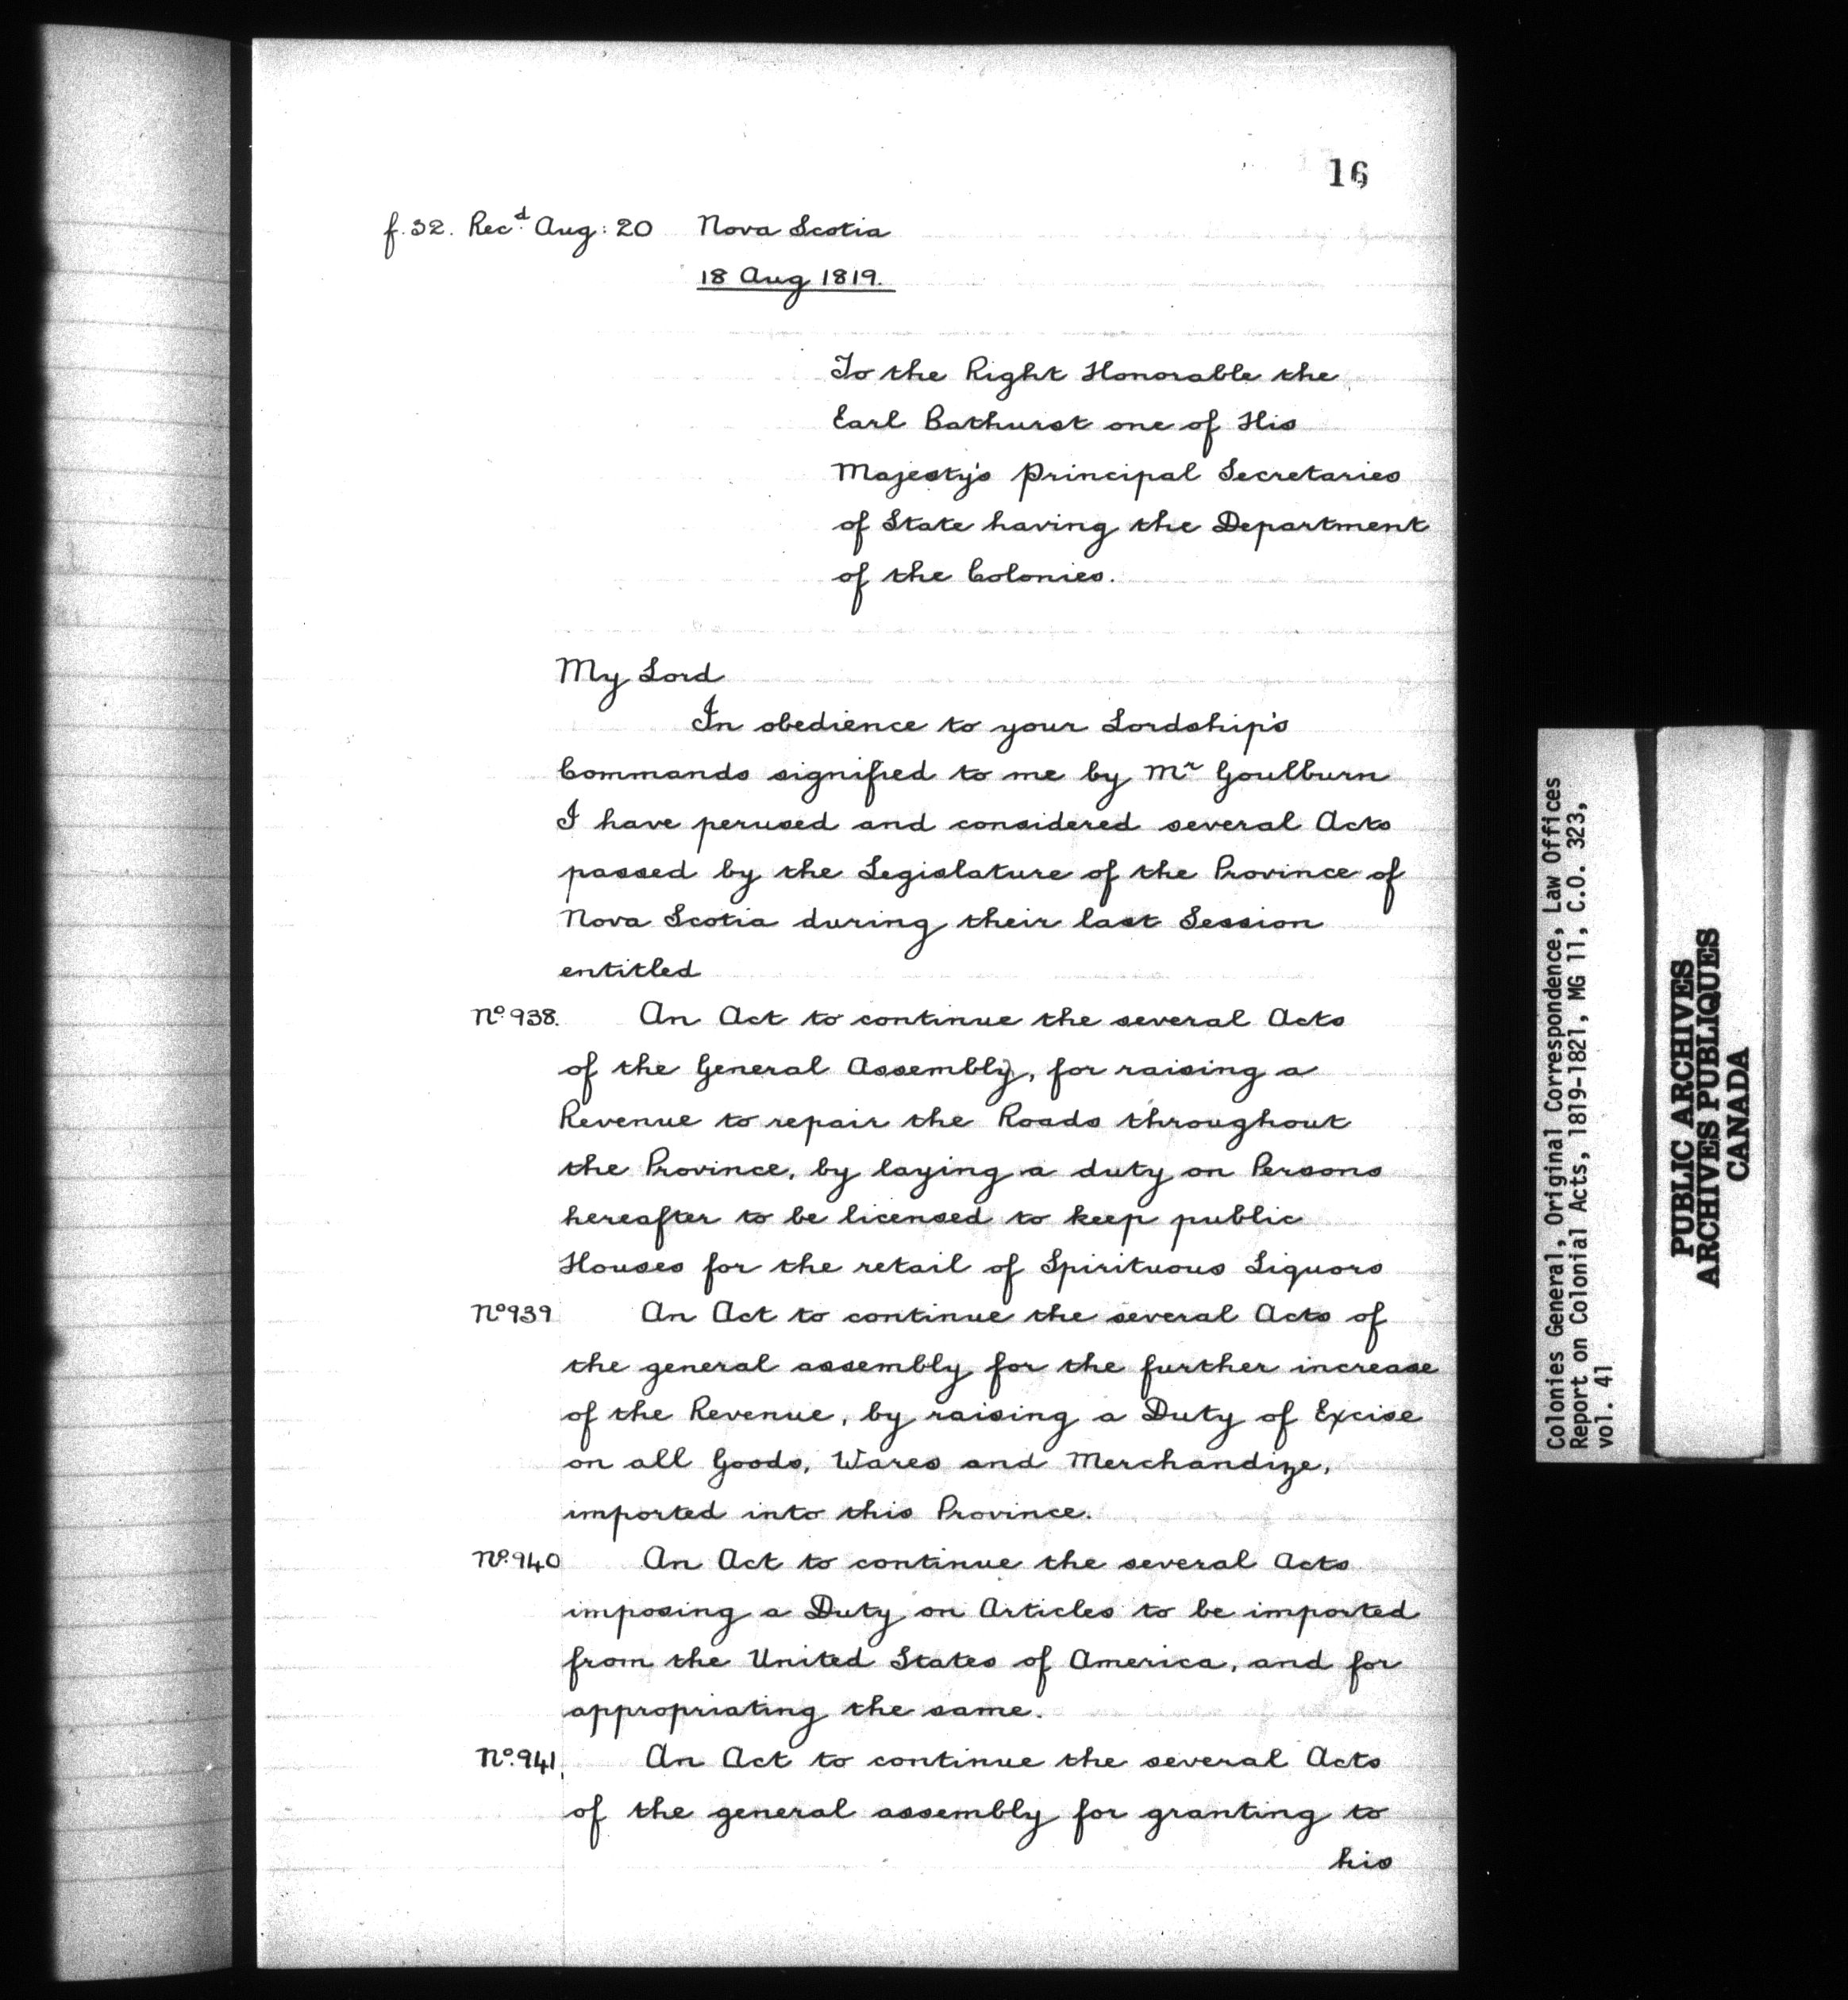 16
f. 32. Recd. Aug: 20 Nova Scotia
18 Aug 1819.
To the Right Honorable the
Earl Bathurst one of His
Majesty's Principal Secretaries
of State having the Department
of the Colonies.
My Lord
In obedience to your Lordship's
Commands signified to me by Mr Goulburn
I have perused and considered several Acts
passed by the Legislature of the Province of
Nova Scotia during their last Session
entitled
No 938. An Act to continue the several Acts
of the General Assembly, for raising a
Revenue to repair the Roads throughout
the Province, by laying a duty on Persons
hereafter to be licensed to keep public
Houses for the retail of Spirituous Liquors
No 939 An Act to continue the several Acts of
the general assembly for the further increase
of the Revenue, by raising a Duty of Excise
on all Goods, Wares and Merchandize,
imported into this Province.
No. 940 An Act to continue the several Acts
imposing a Duty on Articles to be imported
from the United States of America, and for
appropriating the same.
No. 941, An Act to continue the several Acts
of the general assembly for granting to
his
Colonies General, Original Correspondence, Law Offices
Report on Colonial Acts, 1819-1821, MG 11, C.O. 323,
vol. 41
PUBLIC ARCHIVES
ARCHIVES PUBLIQUES
CANADA